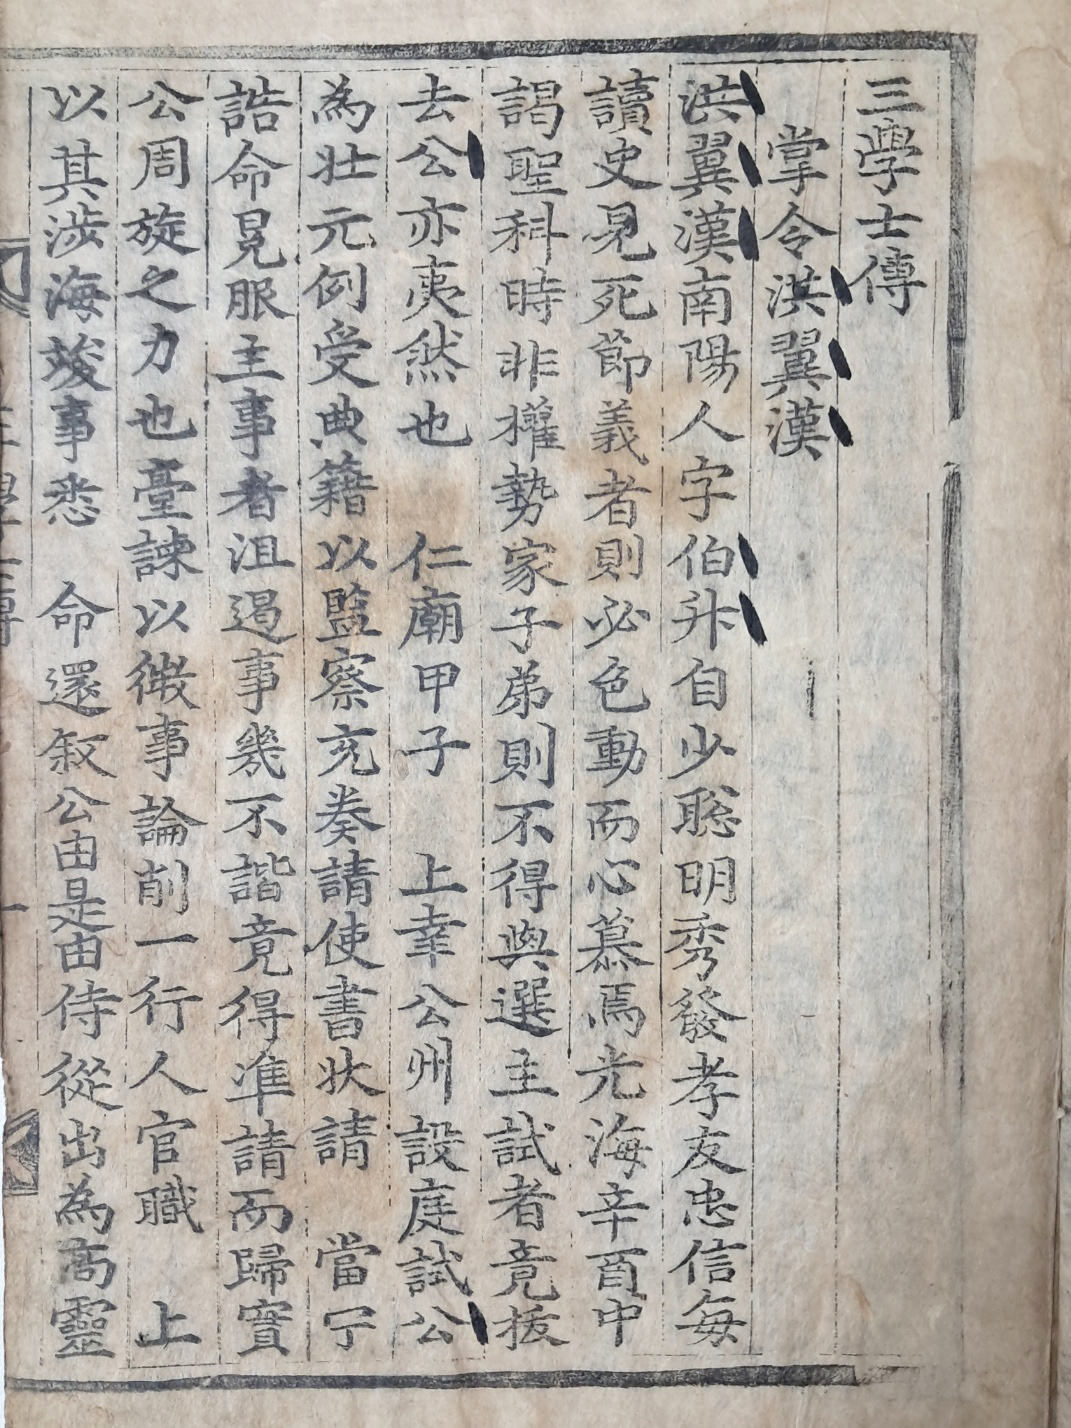 三學士傳
掌令洪翼漢
洪翼漢南陽人字伯升自少聡明秀發孝友忠信每
讀史見死節義者則必色動而心慕焉光海辛酉中
謁聖科時非權勢家子弟則不得與選主試者竟拔
去公亦夷然也 仁廟甲子 上幸公州設庭試公
為壯元例受典籍以監察充奏請使書狀請 當宁
誥命冕服主事者沮遏事幾不諧竟得準請而歸實
公周旋之力也臺諫以微事論削一行人官職 上
以其涉海竣事悉 命還叙公由是由侍從出為高靈